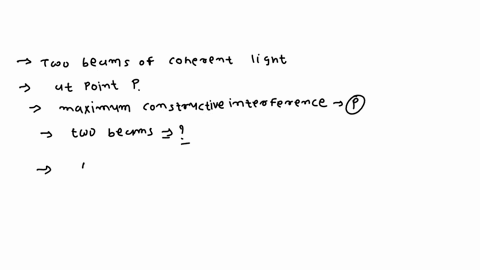 → Two beams of coherent light
→ at point P.
→ maximum constructive interference → P
→ two beams ⇒ ?
→